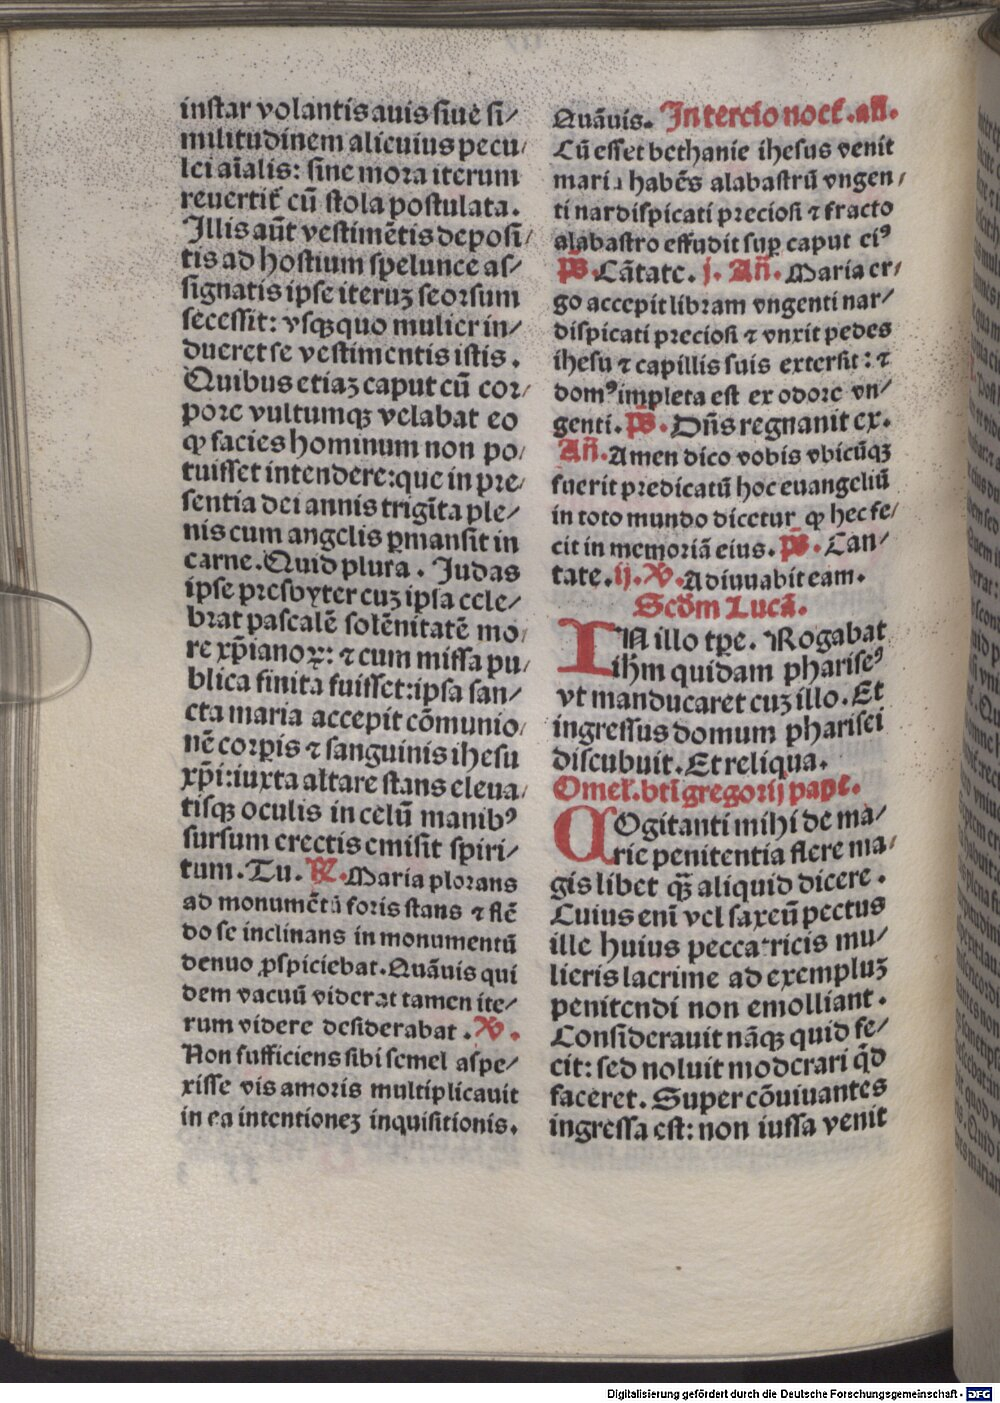 instar volantis auis siue si/
militudinem alicuius pecu/
lei aīalis: sine mora iterum
reuertit᷑ cū stola postulata.
Illis aūt vestimētis deposi/
tis ad hostium spelunce as/
signatis ipse iteruꝫ seorsum
secessit: vsqꝫ quo mulier in/
dueret se vestimentis istis.
Quibus etiaꝫ caput cū cor/
pore vultumqꝫ velabat eo
ꝙ facies hominum non po/
tuisset intendere: que in pre/
sentia dei annis trigīta ple/
nis cum angelis ꝑmansit in
carne. Quid plura. Judas
ipse presbyter cuꝫ ipsa cele/
brat pascalē solēnitatē mo/
re xp̄ianoꝝ: ⁊ cum missa pu/
blica finita fuisset: ipsa san/
cta maria accepit cōmunio/
nē corꝑis ⁊ sanguinis ihesu
xp̄i: iuxta altare stans eleua/
tisqꝫ oculis in celū manibꝰ
sursum erectis emisit spiri/
tum. Tu. ℟. Maria plorans
ad monumētū foris stans ⁊ flē
do se inclinans in monumentū
denuo ꝓspiciebat. Quāuis qui
dem vacuū viderat tamen ite/
rum videre desiderabat. ℣.
Non sufficiens sibi semel aspe/
xisse vis amoris multiplicauit
in ea intentioneꝫ inquisitionis.
Quāuis. In tercio noct̄. an̄.
Cū esset bethanie ihesus venit
maria habēs alabastrū vngen/
ti nardispicati preciosi ⁊ fracto
alabastro effudit suꝑ caput eiꝰ
p̄s. Cātate. j. An̄. Maria er/
go accepit libram vngenti nar/
dispicati preciosi ⁊ vnxit pedes
ihesu ⁊ capillis suis extersit: ⁊
domꝰ impleta est ex odore vn/
genti. p̄s. Dn̄s regnauit ex.
An̄. Amen dico vobis vbicūqꝫ
fuerit predicatū hoc euangeliū
in toto mundo dicetur ꝙ hec fe/
cit in memoriā eius. p̄s. Can/
tate. ij. ℣. Adiuuabit eam.
Scd̄m Lucā.
IN illo tꝑe. Rogabat
ihm̄ quidam phariseꝰ
vt manducaret cuꝫ illo. Et
ingressus domum pharisei
discubuit. Et reliqua.
Omel̄. bt̄i gregorij pape.
COgitanti mihi de ma/
rie penitentia flere ma/
gis libet qꝫ̄ aliquid dicere.
Cuius enī vel saxeū pectus
ille huius peccatricis mu/
lieris lacrime ad exempluꝫ
penitendi non emolliant.
Considerauit nāqꝫ quid fe/
cit: sed noluit moderari q̄d
faceret. Super cōuiuantes
ingressa est: non iussa venit
Digitalisierung gefördert durch die Deutsche Forschungsgemeinschaft - DFG